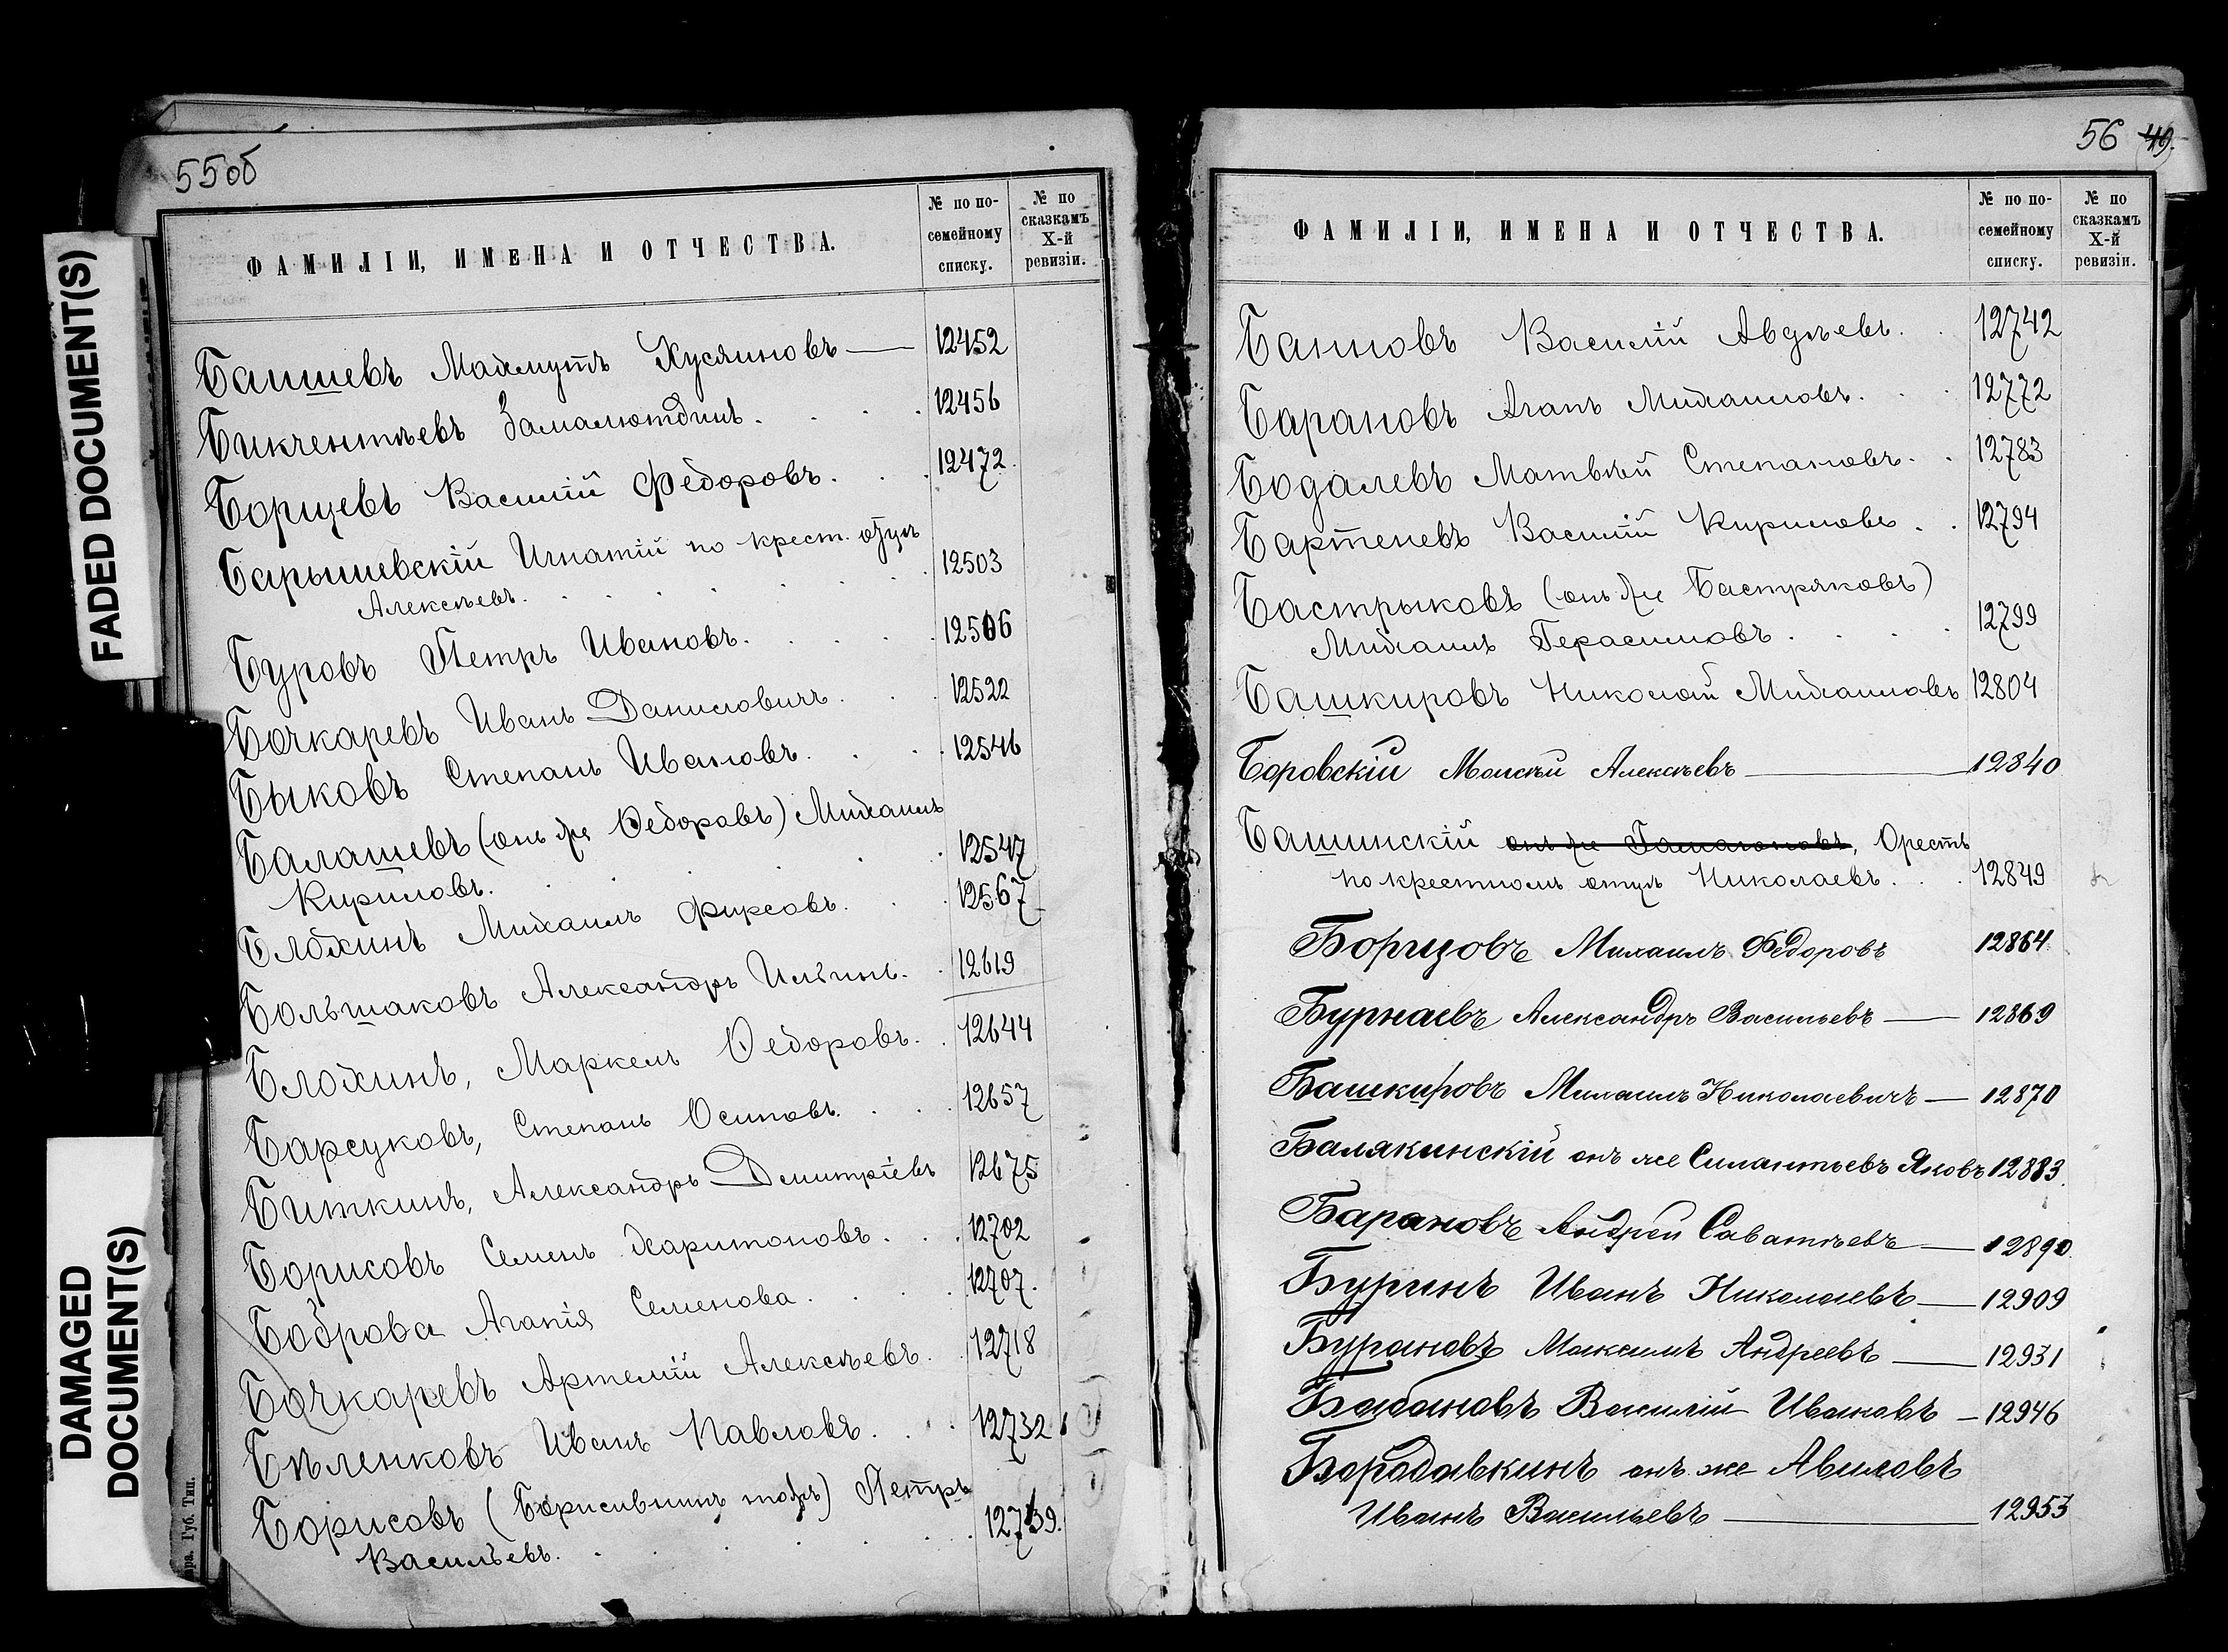 55об
ФАМИЛІИ, ИМЕНА И ОТЧЕСТВА.
№ по по-
семейному
списку.
№ по
сказкамъ
X-й
ревизіи.
Баишевъ Махмутъ Хусяиновъ — 12452
Бикчентѣевъ Замалютдинъ. 12456
Борщевъ Василій Федоровъ. 12472.
Барышевскій Игнатій по крест. отцу
Алексѣевъ. 12503
Буровъ Петръ Ивановъ. 12506
Бочкаревъ Иванъ Даниловичъ. 12522
Быковъ Степанъ Ивановъ. 12546
Балашевъ (онъ же Ѳедоровъ) Михаилъ
Кириловъ. 12547
Блохинъ Михаилъ Фирсовъ. 12567
Большаковъ Александръ Ильинъ. 12619
Блохинъ, Маркелъ Ѳедоровъ. 12644
Барсуковъ, Степанъ Осиповъ. 12657
Биткинъ, Александръ Дмитріевъ 12675
Борисовъ Семенъ Харитоновъ. 12702
Боброва Агапія Семенова. 12707.
Бочкаревъ Артемій Алексѣевъ. 12718
Бѣленковъ Иванъ Павловъ. 12732
Борисовъ (Борисивнинъ тожъ) Петръ
Васильевъ. 12739.
FADED DOCUMENT(S)
DAMAGED
DOCUMENT(S)
Губ. Тип.
56 49.
ФАМИЛІИ, ИМЕНА И ОТЧЕСТВА.
№ по по-
семейному
списку.
№ по
сказкамъ
X-й
ревизіи.
Банновъ Василій Авдѣевъ. 12742
Барановъ Агапъ Михаиловъ. 12772
Бодалевъ Матвѣй Степановъ. 12783
Бартеневъ Василій Кириловъ. 12794
Бастрыковъ (онъ же Бастряковъ)
Михаилъ Герасимовъ. 12799
Башкировъ Николай Михаиловъ 12804
Боровскій Моисѣй Алексѣевъ — 12840
Башинскій онъ же, Орестъ
по крестному отцу Николаевъ. 12849
Борщовъ Михаилъ Федоровъ 12864
Бурнаевъ Александръ Васильевъ — 12869
Башкировъ Михаилъ Николаевичъ — 12870
Балякинскій онъ же Силантьевъ Яковъ 12883.
Барановъ Андрей Саватѣевъ — 12890.
Буринъ Иванъ Николаевъ — 12909
Бурановъ Максимъ Андреевъ — 12931
Бабановъ Василій Ивановъ — 12946
Бородавкинъ онъ же Авиловъ
Иванъ Васильевъ — 12953